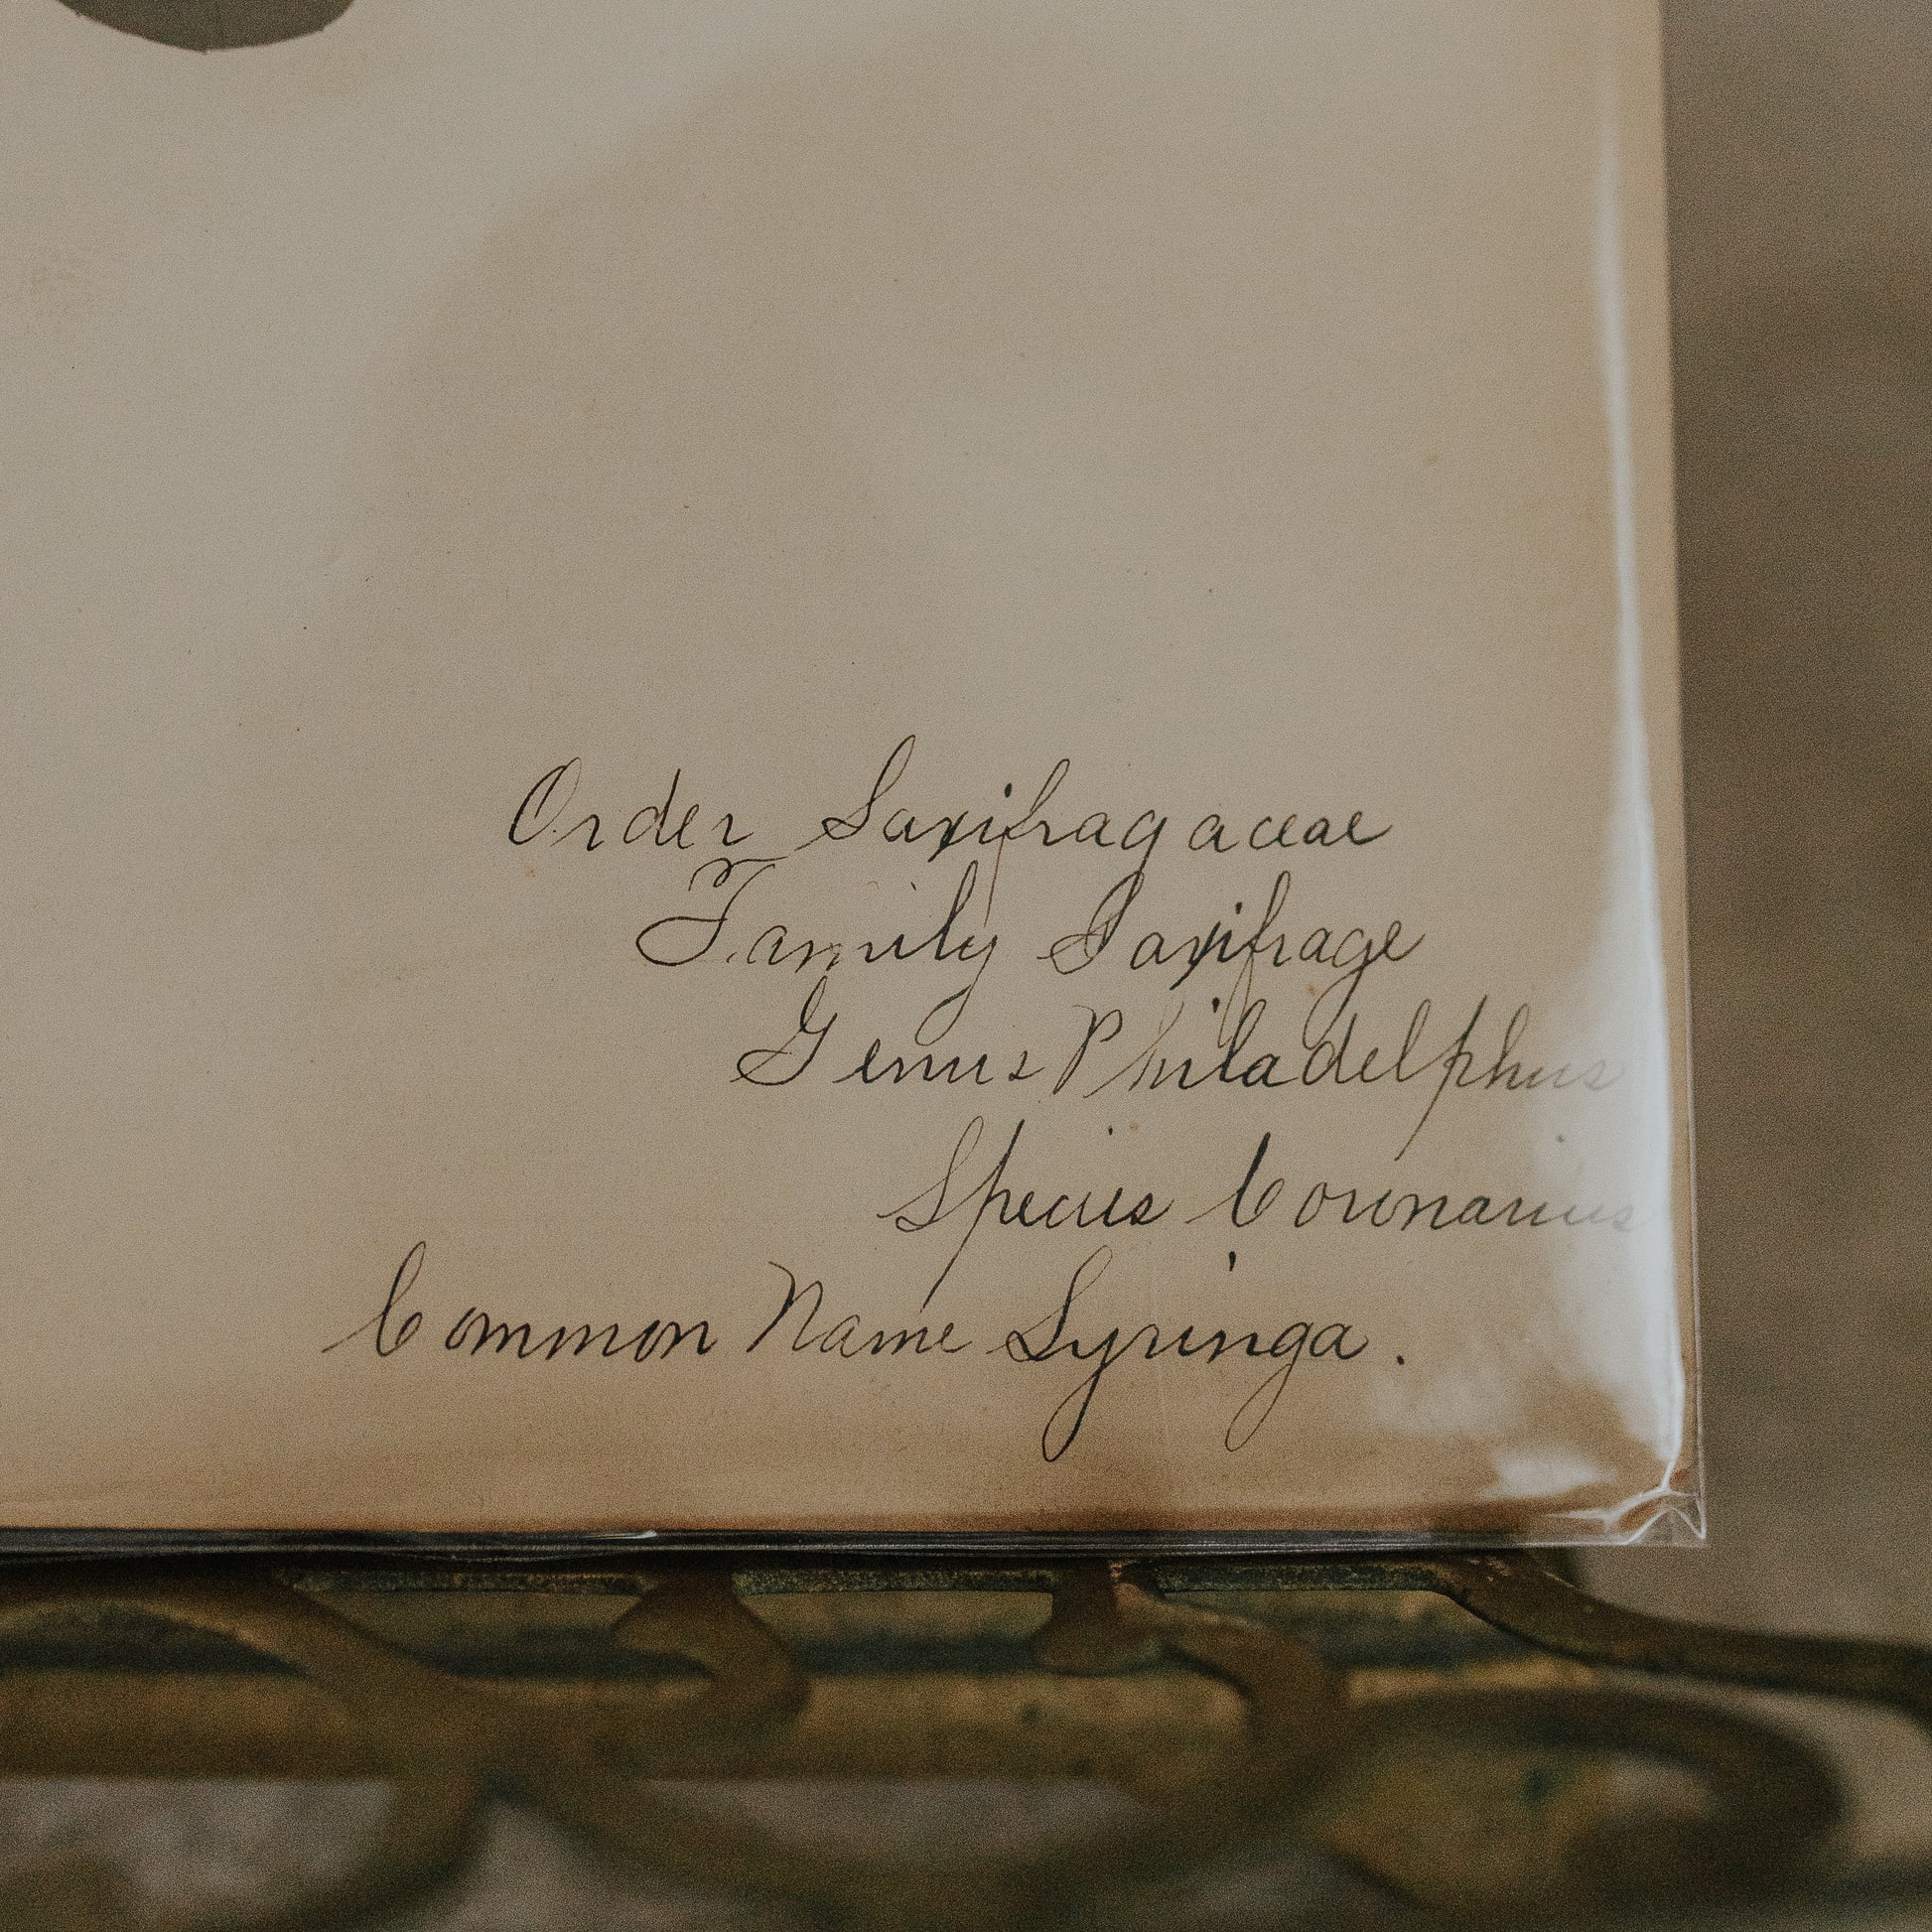 Order Saxifragaceae
Family Saxifrage
Genus Philadelphus
Species Coronarius
Common Name Syringa.